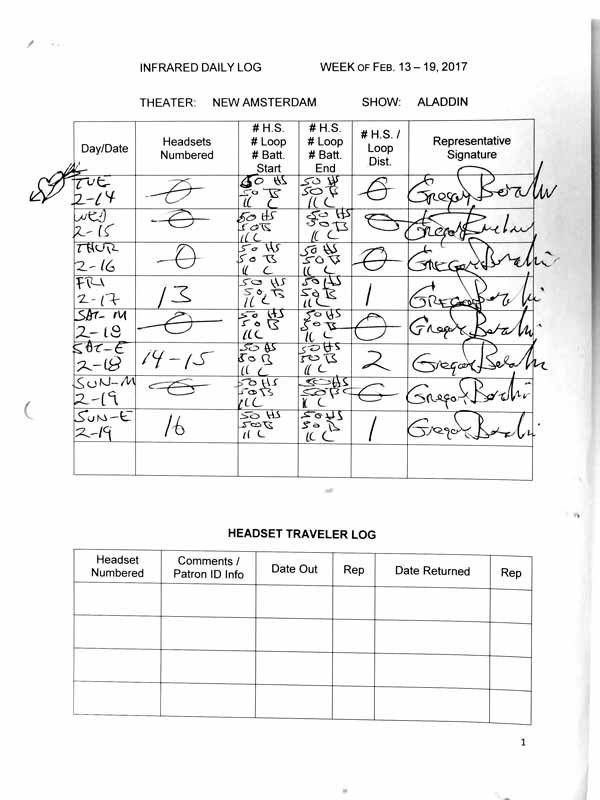 INFRARED DAILY LOG WEEK OF FEB. 13 – 19, 2017
THEATER: NEW AMSTERDAM SHOW: ALADDIN
Day/Date Headsets Numbered # H.S. # Loop # Batt. Start # H.S. # Loop # Batt. End # H.S. / Loop Dist. Representative Signature
TUE 2-14 0 50 HS 50 B 11 C 50 HS 50 B 11 C 0 Gregory
WED 2-15 0 50 HS 50 B 11 C 50 HS 50 B 11 C 0 Gregory
THUR 2-16 0 50 HS 50 B 11 C 50 HS 50 B 11 C 0 Gregory
FRI 2-17 13 50 HS 50 B 11 C 50 HS 50 B 11 C 1 Gregory
SAT-M 2-18 0 50 HS 50 B 11 C 50 HS 50 B 11 C 0 Gregory
SAT-E 2-18 14-15 50 HS 50 B 11 C 50 HS 50 B 11 C 2 Gregory
SUN-M 2-19 0 50 HS 50 B 11 C 50 HS 50 B 11 C 0 Gregory
SUN-E 2-19 16 50 HS 50 B 11 C 50 HS 50 B 11 C 1 Gregory
HEADSET TRAVELER LOG
Headset Numbered Comments / Patron ID Info Date Out Rep Date Returned Rep
1